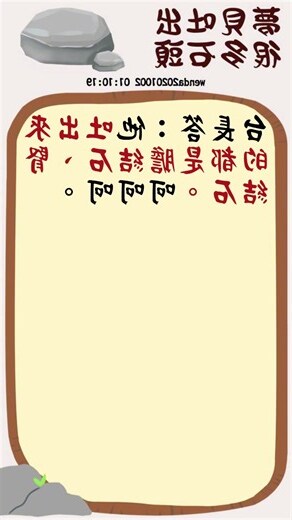 夢見吐出
很多石頭
wenda20201002 01:10:19
台長答：他吐出來
的都是膽結石、腎
結石。呵呵呵。